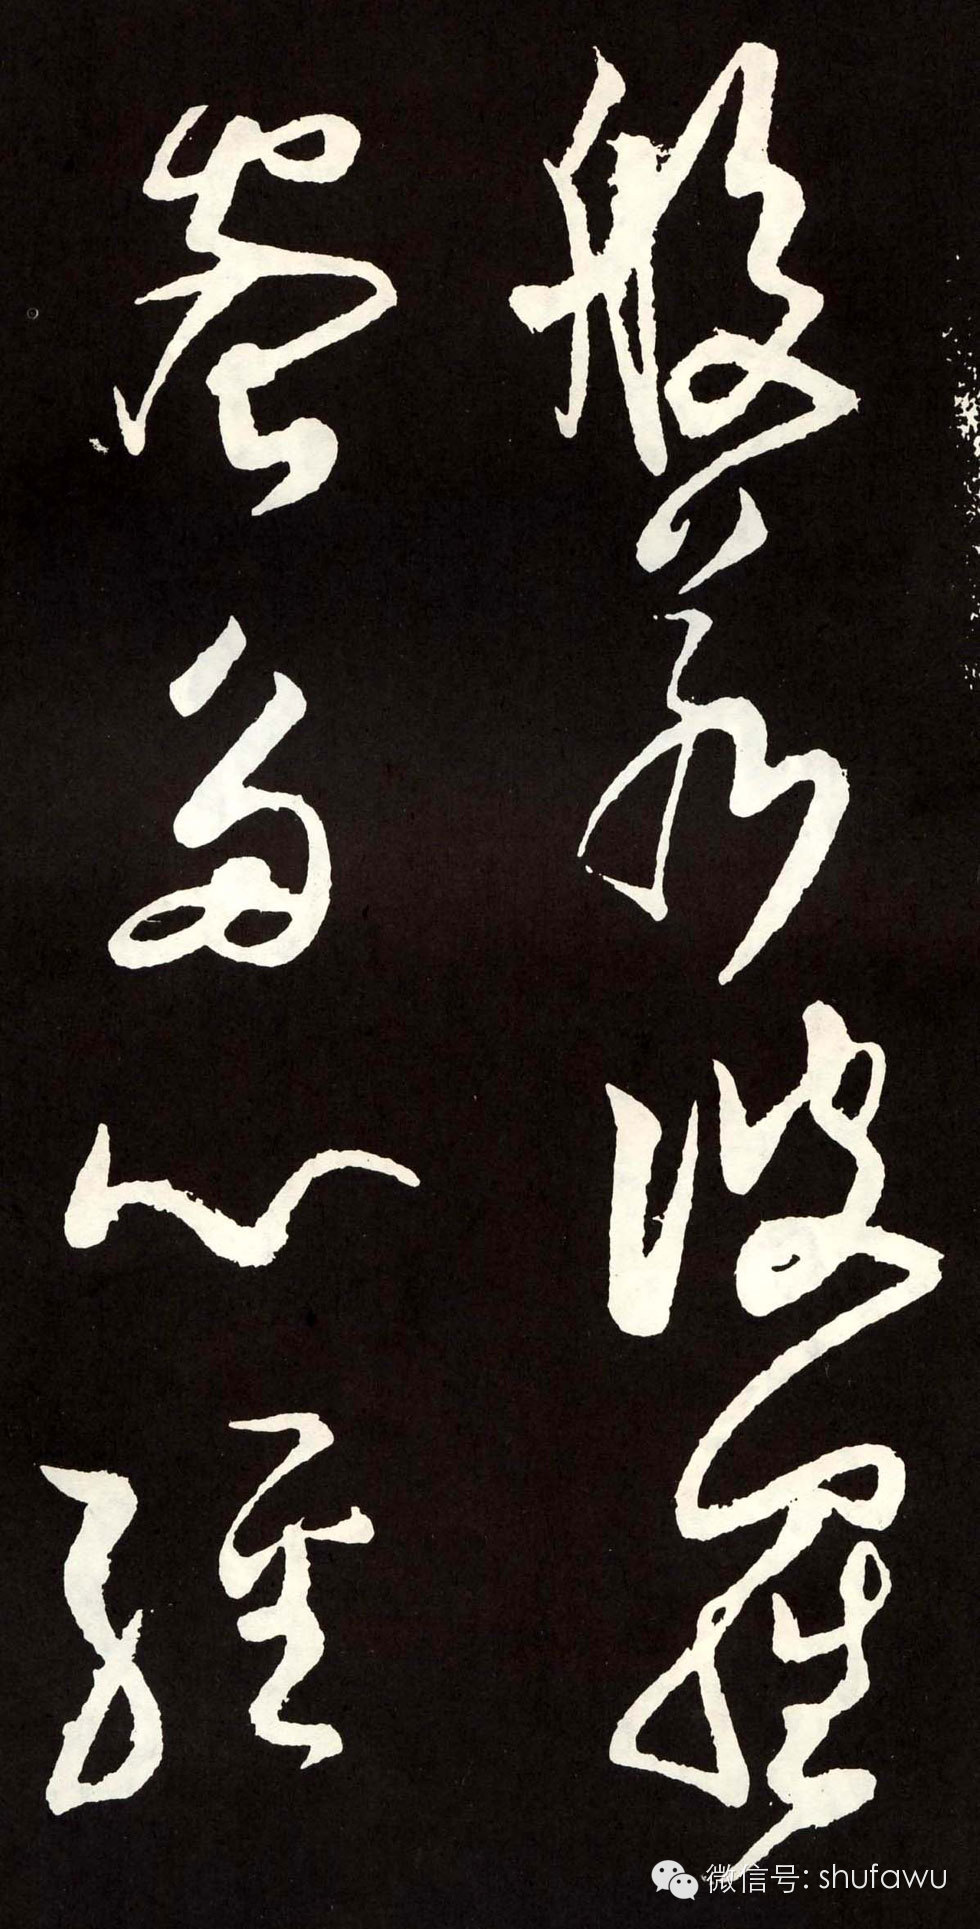 般若波羅
蜜多心經
微信号: shufawu